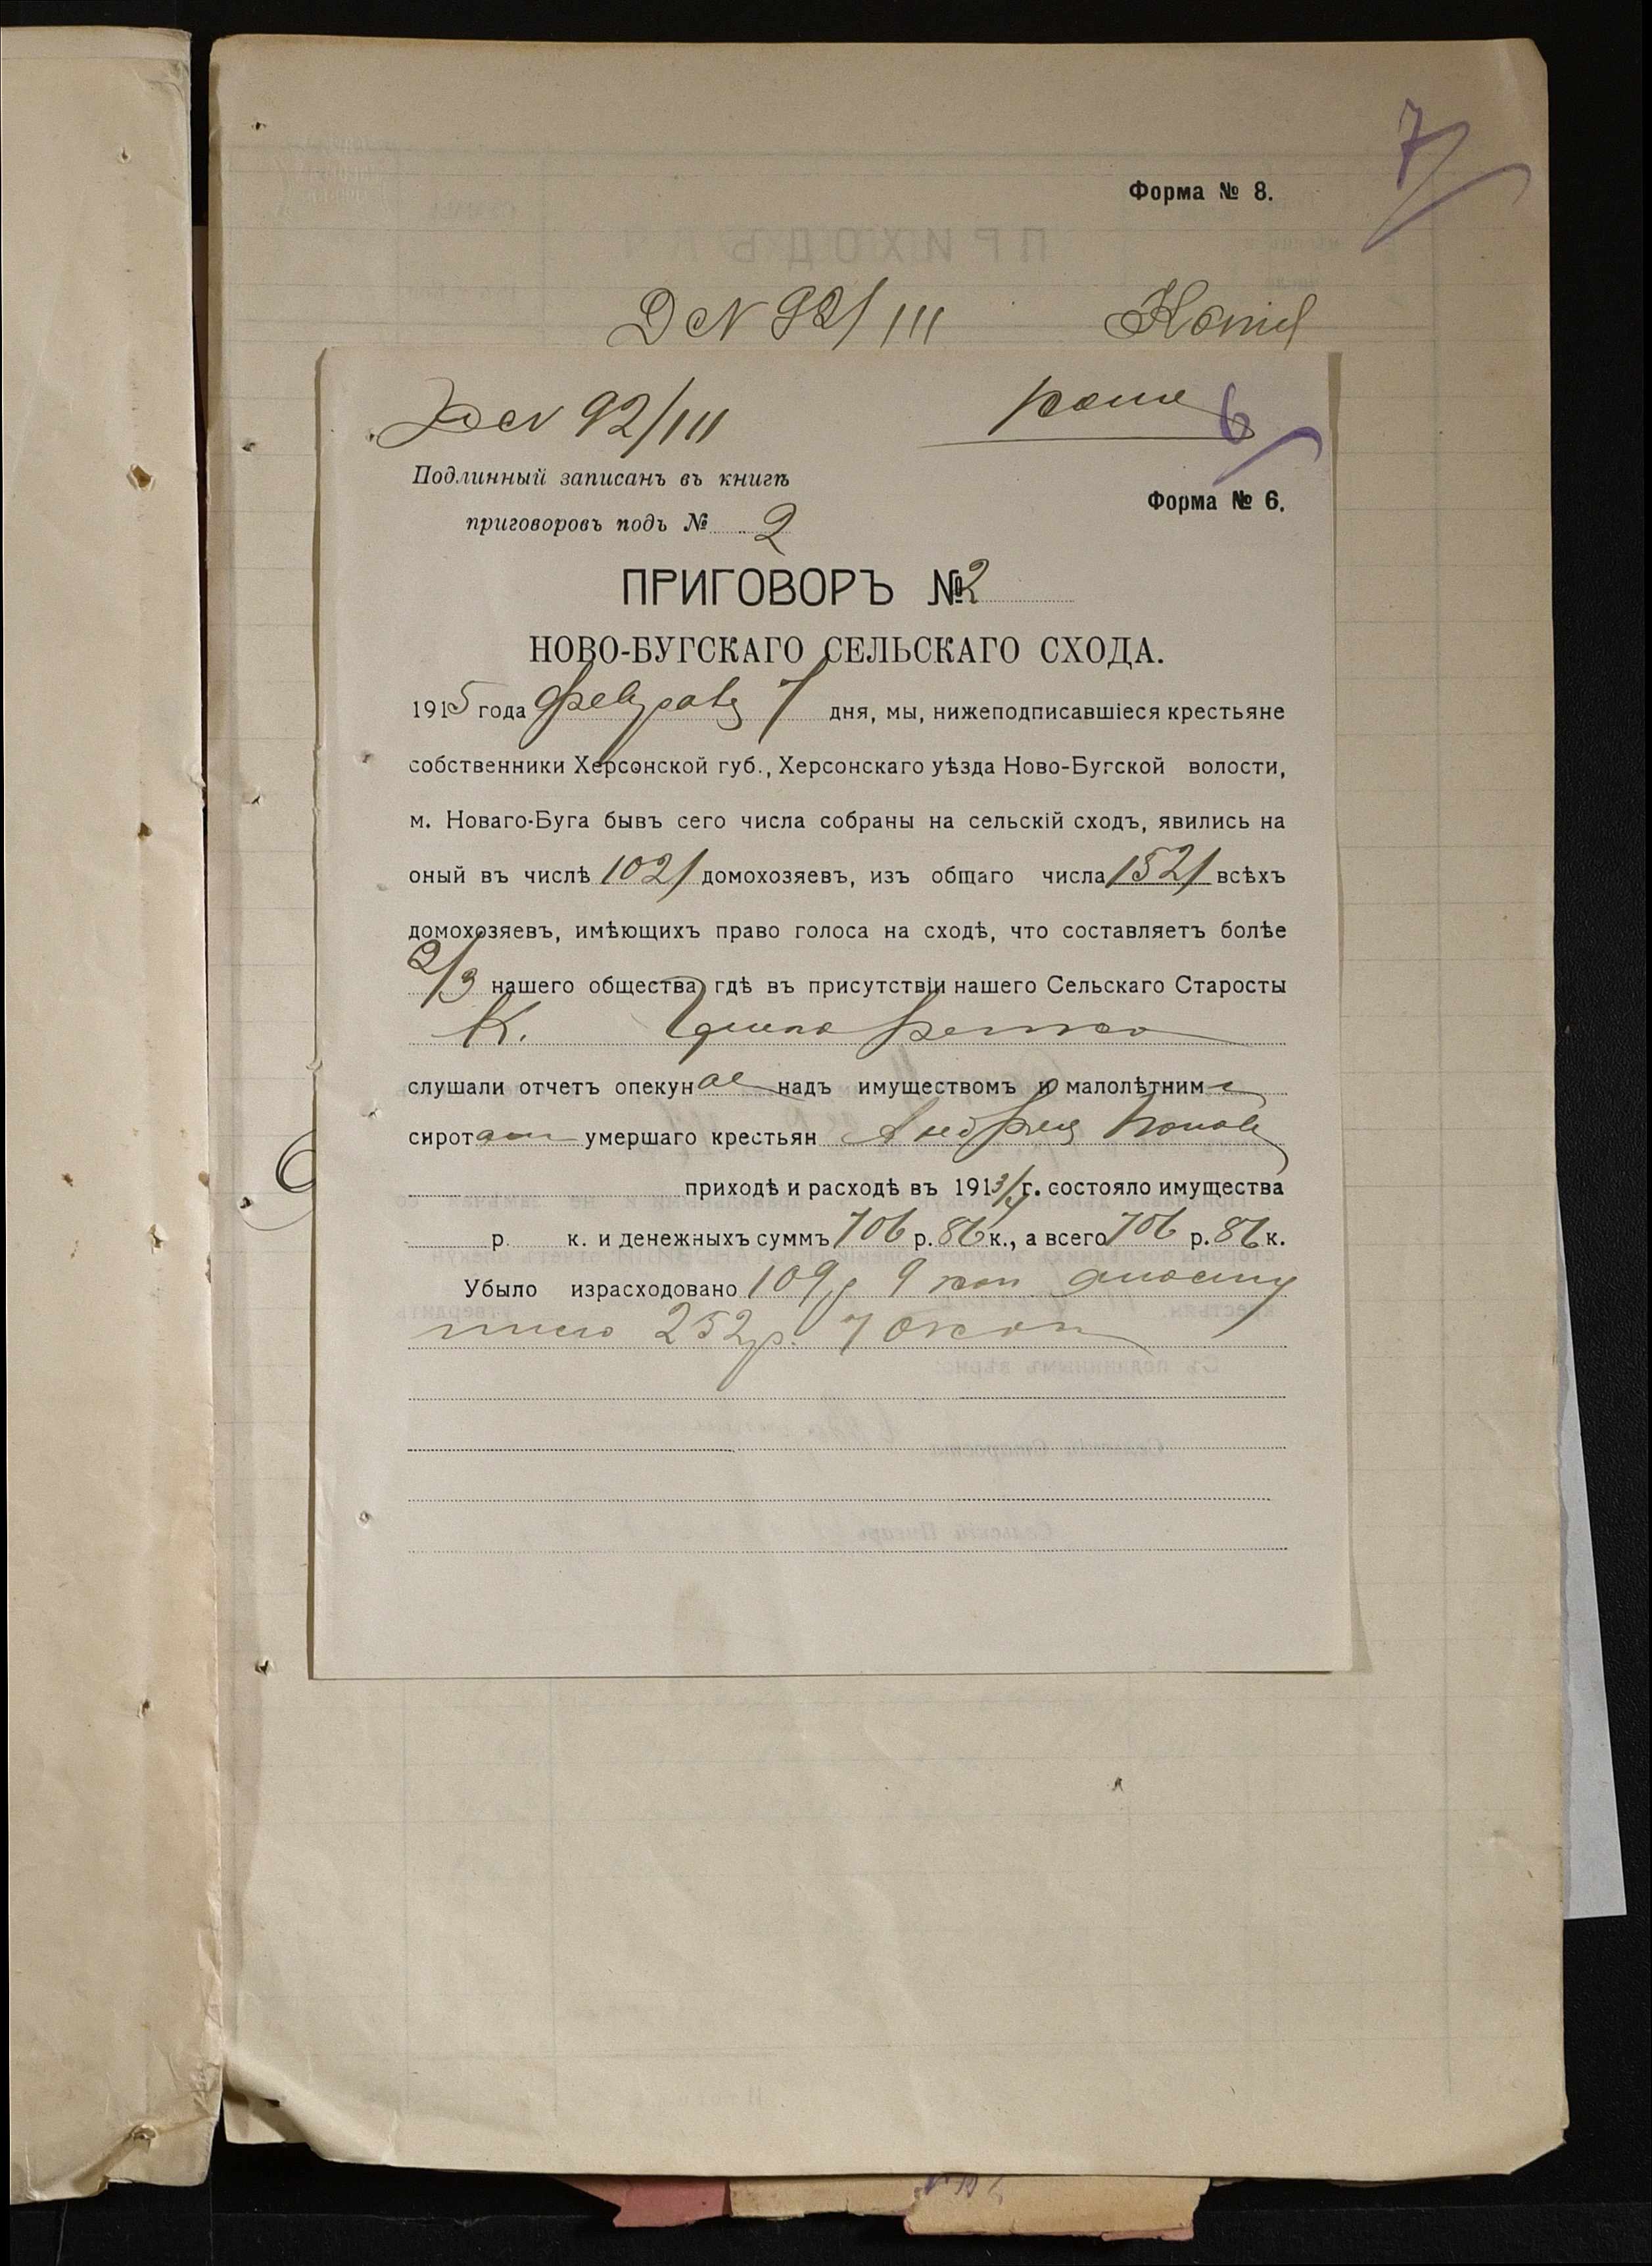 7
Форма № 8.
Д № 92/III Копія
Д № 92/III Копія
6
Подлинный записанъ въ книгѣ
Форма № 6.
приговоровъ подъ № 2
ПРИГОВОРЪ № 2
НОВО-БУГСКАГО СЕЛЬСКАГО СХОДА.
1915 года Февраля 7 дня, мы, нижеподписавшіеся крестьяне
собственники Херсонской губ., Херсонскаго уѣзда Ново-Бугской волости,
м. Новаго-Буга бывъ сего числа собраны на сельскій сходъ, явились на
оный въ числѣ 1021 домохозяевъ, изъ общаго числа 1521 всѣхъ
домохозяевъ, имѣющихъ право голоса на сходѣ, что составляетъ болѣе
2/3 нашего общества, гдѣ въ присутствіи нашего Сельскаго Старосты
К.
слушали отчетъ опекунов надъ имуществомъ и малолѣтними
сиротами умершаго крестьян Андрея Попова
приходѣ и расходѣ въ 1913/4 г. состояло имущества
р. к. и денежныхъ суммъ 706 р. 86 к., а всего 706 р. 86 к.
Убыло израсходовано 109 р 9 коп
252 р. 70 коп